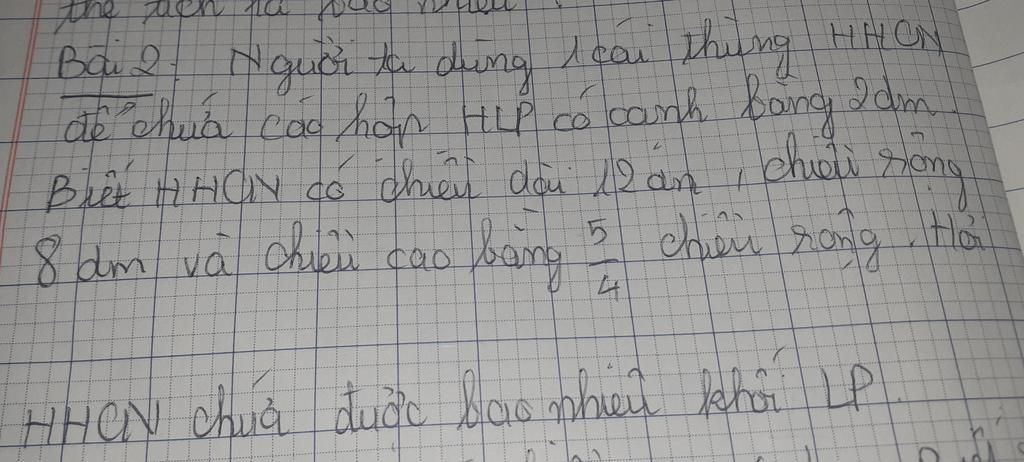 thể tích là bao nhiêu
Bài 2: Người ta dùng 1 cái thùng HHCN
để chứa các hộp HLP có cạnh bằng 2dm.
Biết HHCN có chiều dài 12 dm, chiều rộng
8 dm và chiều cao bằng 5/4 chiều rộng. Hỏi
HHCN chứa được bao nhiêu khối LP.